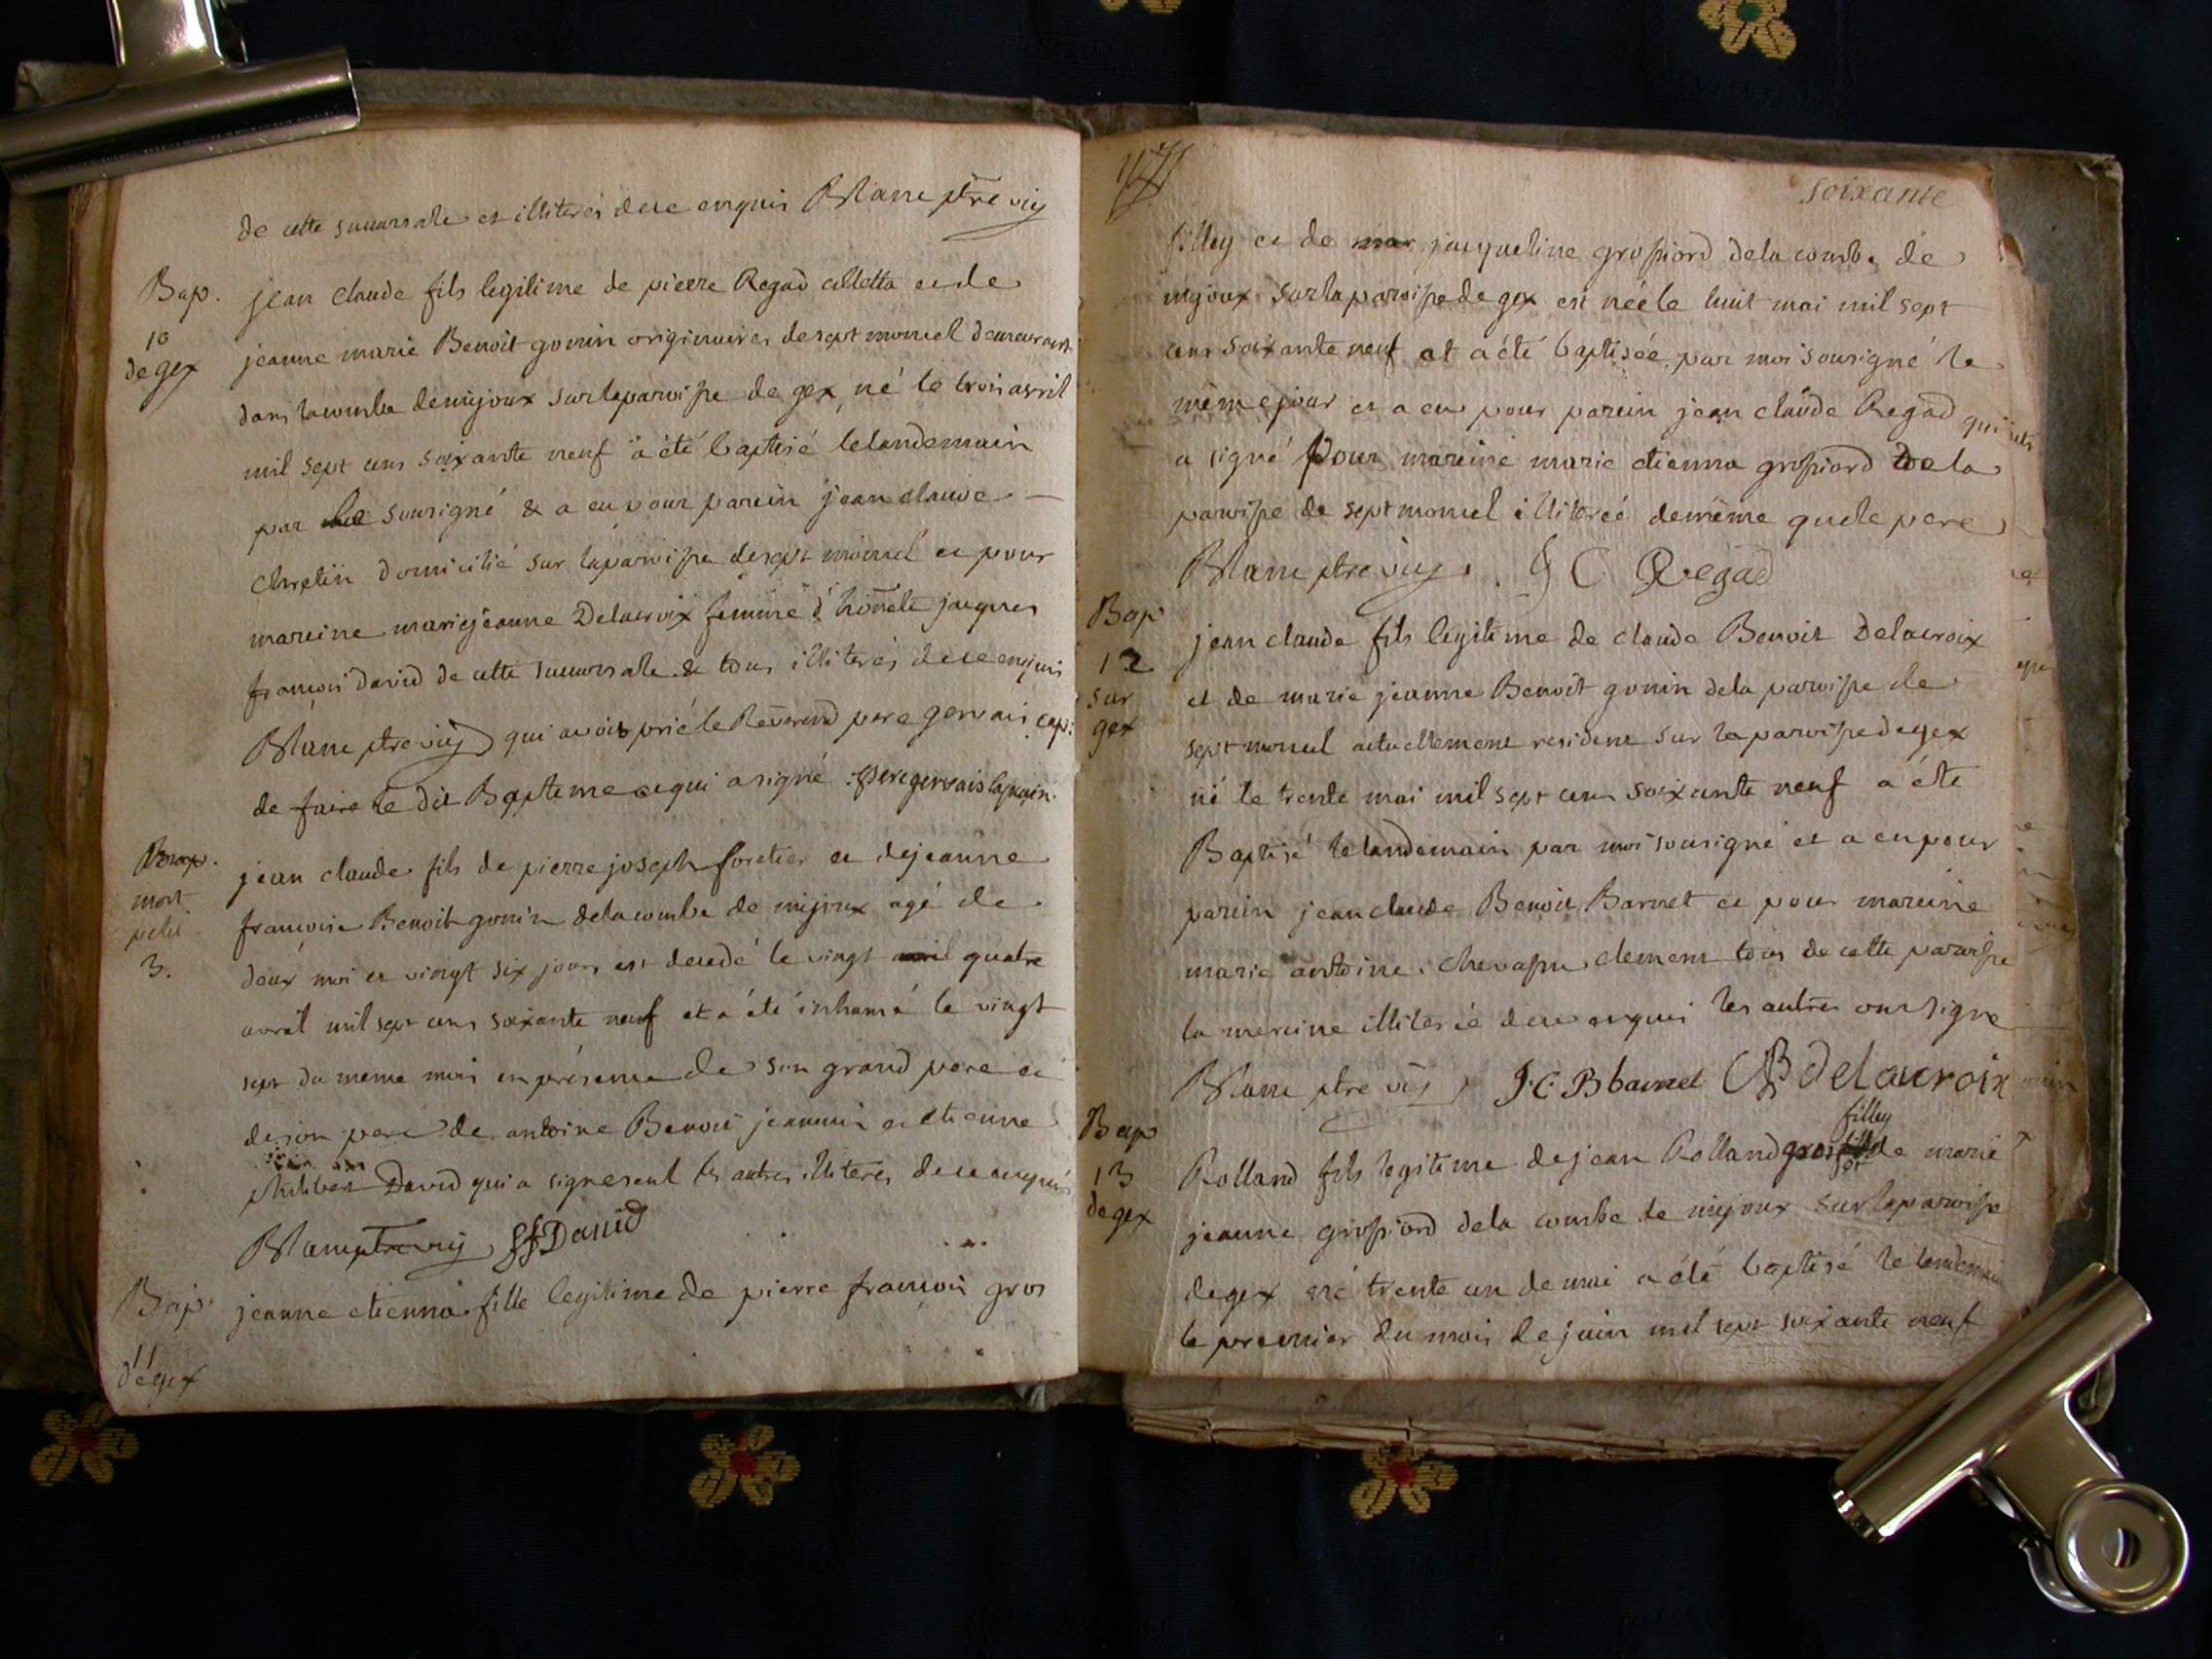 de cette succursale et illiterés de ce enquis Blanc ptre vic
Bap. jean claude fils legitime de pierre Regad colletta et de
10 jeanne marie Benoit gonin originaires de sept moncel demeurant
de gex dans la combe de mijoux sur la paroisse de gex né le trois avril
mil sept cens soixante neuf a été baptisé le landemain
par sousigné & a eu pour parein jean claude
chretin domicilié sur la paroisse de sept moncel et pour
mareine marie jeanne Delacroix femme d'honete jacques
francois david de cette succursale & tous illiterés de ce enquis
Blanc ptre vic qui avoit prié le Reverend pere gervais cap:
de faire le dit Bapteme et qui a signé pere gervais capucin.
jean claude fils de pierre joseph foretier et de jeanne
mort francoise Benoit gonin de la combe de mijoux agé de
petit deux moi et vingt six jours est decedé le vingt quatre
3. avril mil sept cens soixante neuf et a été inhumé le vingt
sept du meme mois en présence de son grand pere et
de son pere de antoine Benoit jeannin et etienne
philibert David qui a signé seul les autres illiterés de ce enquis
Blanc ptre vic David
Bap. jeanne etienna fille legitime de pierre francois gros
11
de gex
soixante
filley et de jacqueline grosfiord de la combe de
mijoux sur la paroisse de gex est née le huit mai mil sept
cens soixante neuf et a été baptisée par moi sousigné le
même jour et a eu pour parein jean claude Regad qui
a signé pour mareine marie etienna grosfiord de la
paroisse de sept moncel illiterée de même que le pere
Blanc ptre vic. J C Regad
Bap jean claude fils legitime de claude Benoit Delacroix
12 et de marie jeanne Benoit gonin de la paroisse de
sur
gex sept moncel actuellement residens sur la paroisse de gex
né le trente mai mil sept cens soixante neuf a été
Baptisé le landemain par moi sousigné et a eu pour
parein jean claude Benoit Barnet et pour mareine
marie antoine chevassu clement tous de cette paroisse
la mareine illiterée de ce enquis les autres ont signé
Blanc ptre vic J. C. B barnet CB delacroix
filley
Bap Rolland fils legitime de jean Rolland gros et de marie
13 jeanne grosfiord de la combe de mijoux sur la paroisse
de gex de gex né trente un de mai a été baptisé le landemain
le premier du mois de juin mil sept soixante neuf